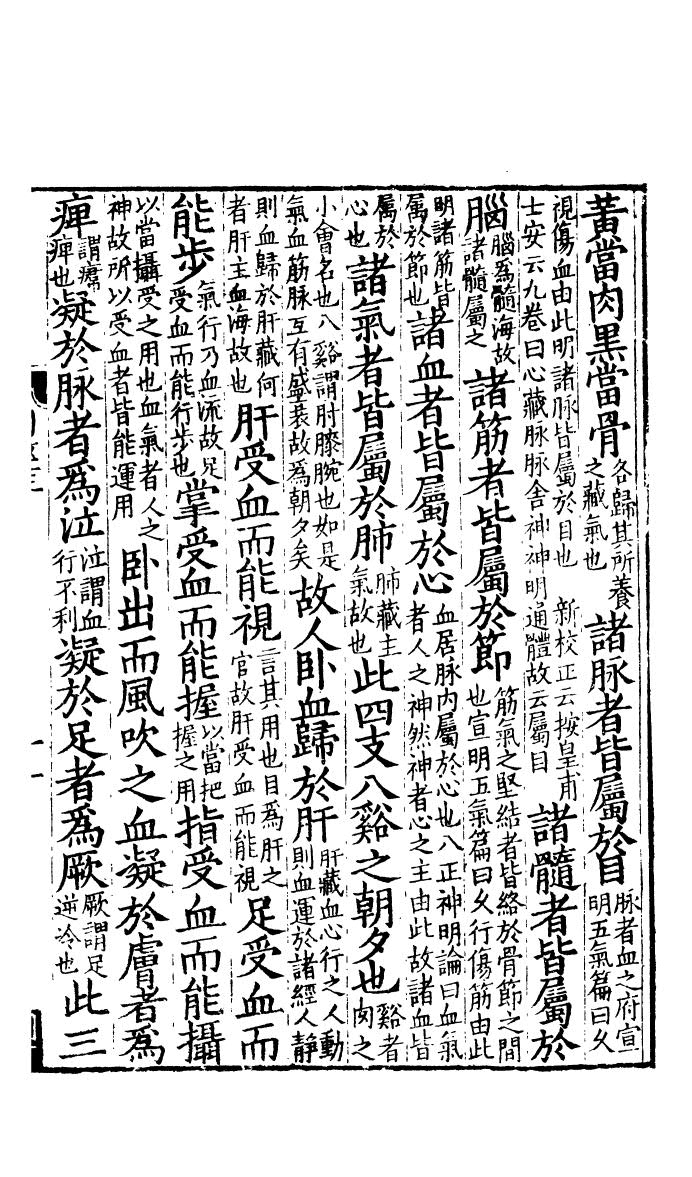 黃當肉黑當骨各歸其所養之藏氣也諸脉者皆屬於目脉者血之府宣明五氣篇曰久
視傷血由此明諸脉皆屬於目也 新校正云按皇甫士安云九卷曰心藏脉脉舍神神明通體故云屬目諸髓者皆屬於
腦腦爲髓海故諸髓屬之諸筋者皆屬於節筋氣之堅結者皆絡於骨節之間也宣明五氣篇曰久行傷筋由此
明諸筋皆屬於節也諸血者皆屬於心血居脉内屬於心也八正神明論曰血氣者人之神然神者心之主由此故諸血皆
屬於心也諸氣者皆屬於肺肺藏主氣故也此四支八谿之朝夕也谿者肉之
小會名也八谿謂肘膝腕也如是氣血筋脉互有盛衰故爲朝夕矣故人卧血歸於肝肝藏血心行之人動則血運於諸經人靜
則血歸於肝藏何者肝主血海故也肝受血而能視言其用也目爲肝之官故肝受血而能視足受血而
能步氣行乃血流故足受血而能行步也掌受血而能握以當把握之用指受血而能攝
以當攝受之用也血氣者人之神故所以受血者皆能運用卧出而風吹之血凝於膚者爲
痺謂痺也凝於脉者爲泣泣謂血行不利凝於足者爲厥厥謂足逆冷也此三